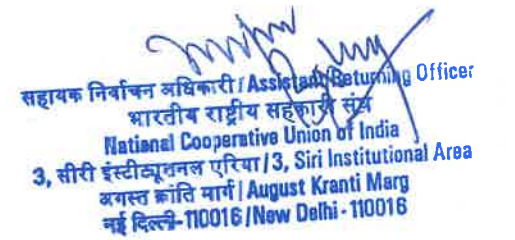 सहायक निर्वाचन अधिकारी / Assistant Returning Officer
भारतीय राष्ट्रीय सहकारी संघ
National Cooperative Union of India
3, सीरी इंस्टीट्यूशनल एरिया / 3, Siri Institutional Area
अगस्त क्रांति मार्ग | August Kranti Marg
नई दिल्ली-110016 / New Delhi - 110016